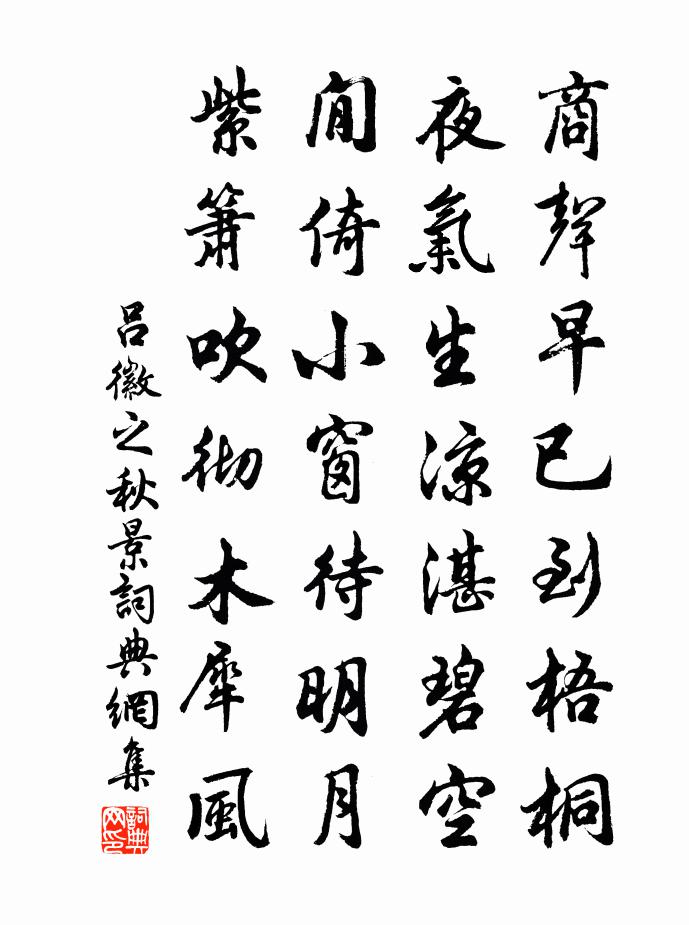 商聲早已到梧桐
夜氣生涼湛碧空
閒倚小窗待明月
紫簫吹彻木犀風
呂徽之秋景詞典網集
詞典网印